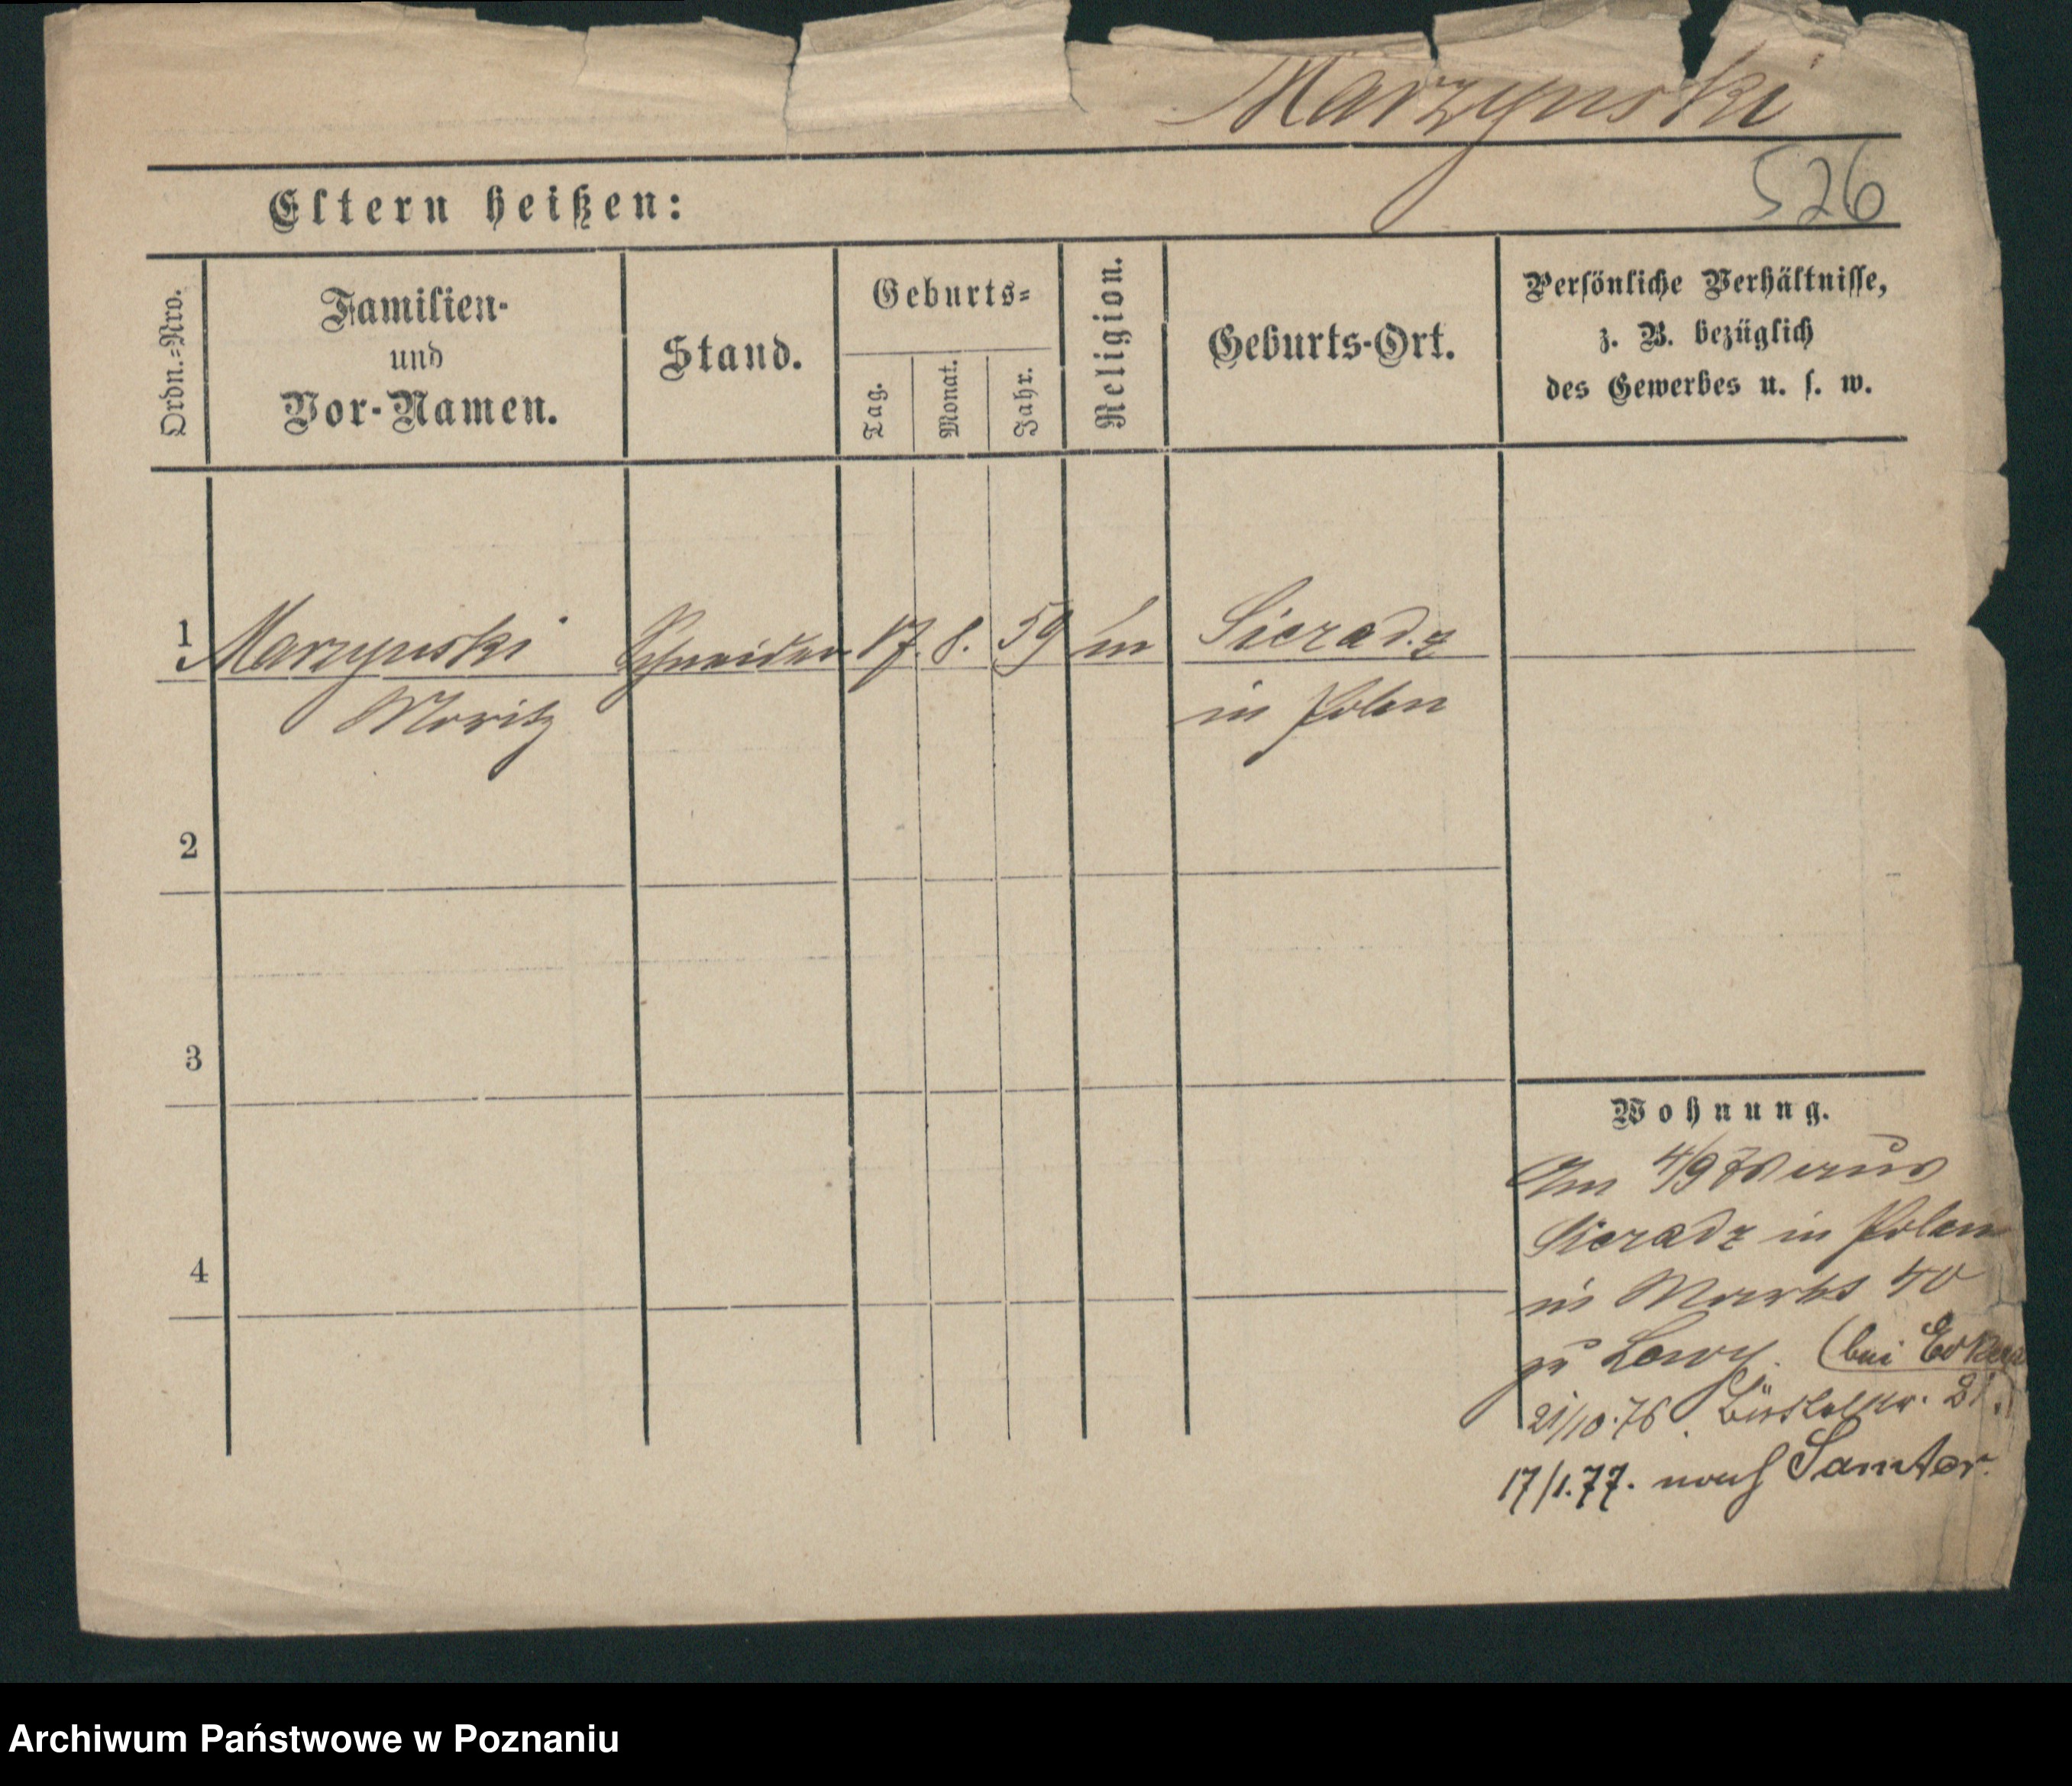 Marzynski
526
Eltern heißen:
Ordn.=Nro.
Familien-
und
Vor-Namen.
Stand.
Geburts=
Tag.
Monat.
Jahr.
Religion.
Geburts-Ort.
Persönliche Verhältnisse,
z. B. bezüglich
des Gewerbes u. s. w.
1 Marzynski Schneider 17. 8. 59 m Sieradz
Moritz in Polen
2
3
4
Wohnung.
Am 4/9 76 aus
Sieradz in Polen
in Markt 40
zu Lowy. (bei
21/10.76. 21.)
17/1.77. nach Samter.
Archiwum Państwowe w Poznaniu